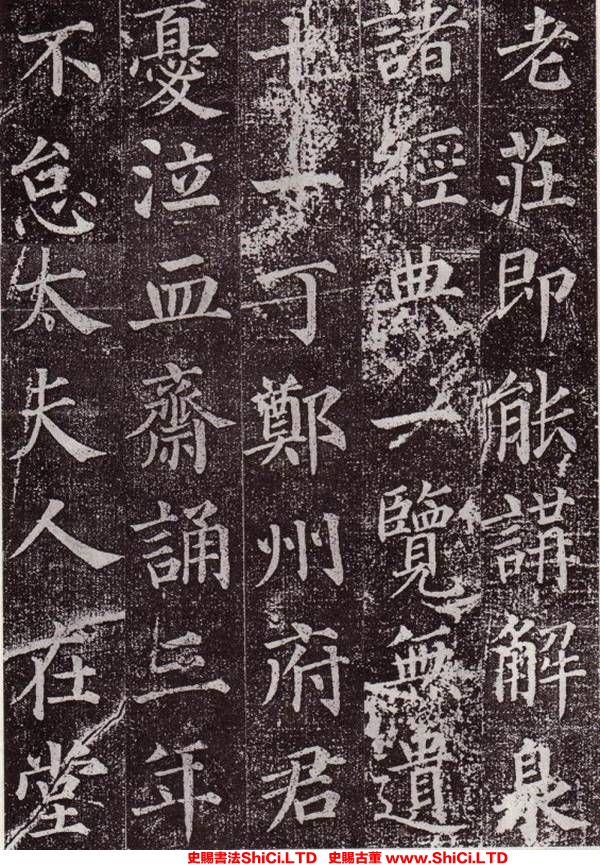 老莊即能講解泉
諸經典一覽無遺
十一丁鄭州府君
憂泣血齋誦三年
不怠太夫人在堂
史賜書法ShiCi.LTD 史賜古董 www.ShiCi.LTD